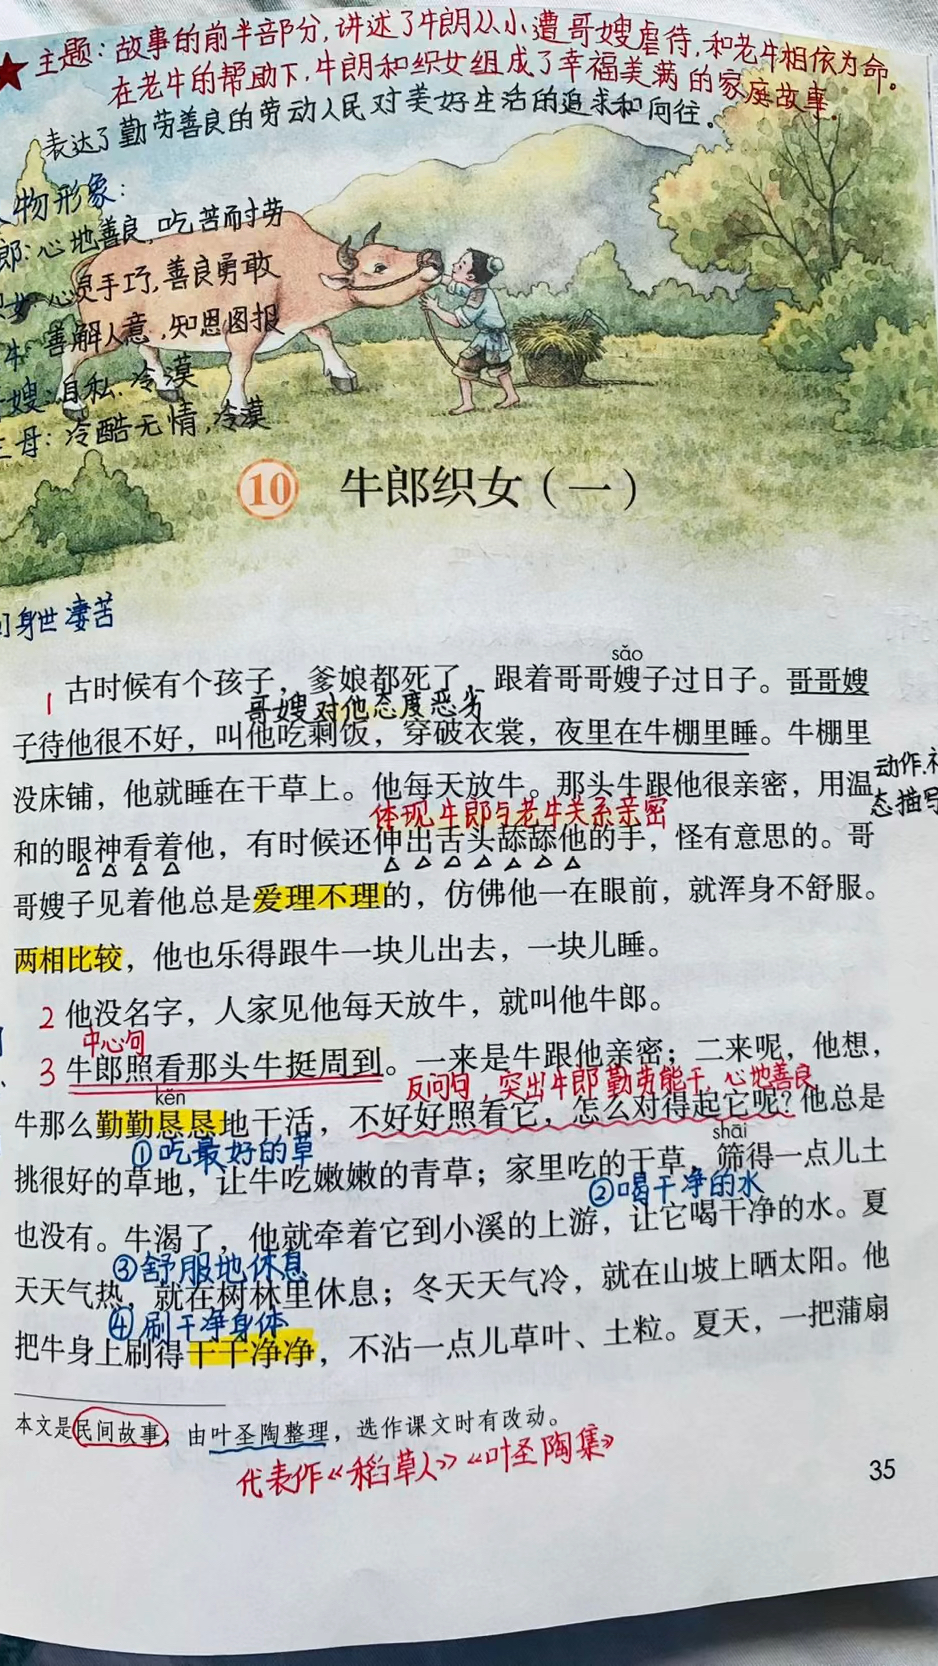 主题：故事的前半部分，讲述了牛朗从小遭哥嫂虐待，和老牛相依为命。
在老牛的帮助下，牛朗和织女组成了幸福美满的家庭故事。
表达了勤劳善良的劳动人民对美好生活的追求和向往。
物形象：
郎：心地善良，吃苦耐劳
女 心灵手巧，善良勇敢
牛 善解人意，知恩图报
嫂：自私、冷漠
母：冷酷无情，冷漠
10 牛郎织女（一）
身世凄苦
sǎo
1 古时候有个孩子，爹娘都死了，跟着哥哥嫂子过日子。哥哥嫂
哥嫂对他态度恶劣
子待他很不好，叫他吃剩饭，穿破衣裳，夜里在牛棚里睡。牛棚里
没床铺，他就睡在干草上。他每天放牛。那头牛跟他很亲密，用温
动作、
态描写
体现牛郎与老牛关系亲密
和的眼神看着他，有时候还伸出舌头舔舔他的手，怪有意思的。哥
哥嫂子见着他总是爱理不理的，仿佛他一在眼前，就浑身不舒服。
两相比较，他也乐得跟牛一块儿出去，一块儿睡。
2 他没名字，人家见他每天放牛，就叫他牛郎。
中心句
3 牛郎照看那头牛挺周到。一来是牛跟他亲密；二来呢，他想，
反问句，突出牛郎勤劳能干，心地善良
kěn
牛那么勤勤恳恳地干活，不好好照看它，怎么对得起它呢？他总是
①吃最好的草
shāi
挑很好的草地，让牛吃嫩嫩的青草；家里吃的干草，筛得一点儿土
②喝干净的水
也没有。牛渴了，他就牵着它到小溪的上游，让它喝干净的水。夏
③舒服地休息
天天气热，就在树林里休息；冬天天气冷，就在山坡上晒太阳。他
④刷干净身体
把牛身上刷得干干净净，不沾一点儿草叶、土粒。夏天，一把蒲扇
本文是民间故事，由叶圣陶整理，选作课文时有改动。
代表作《稻草人》《叶圣陶集》
35